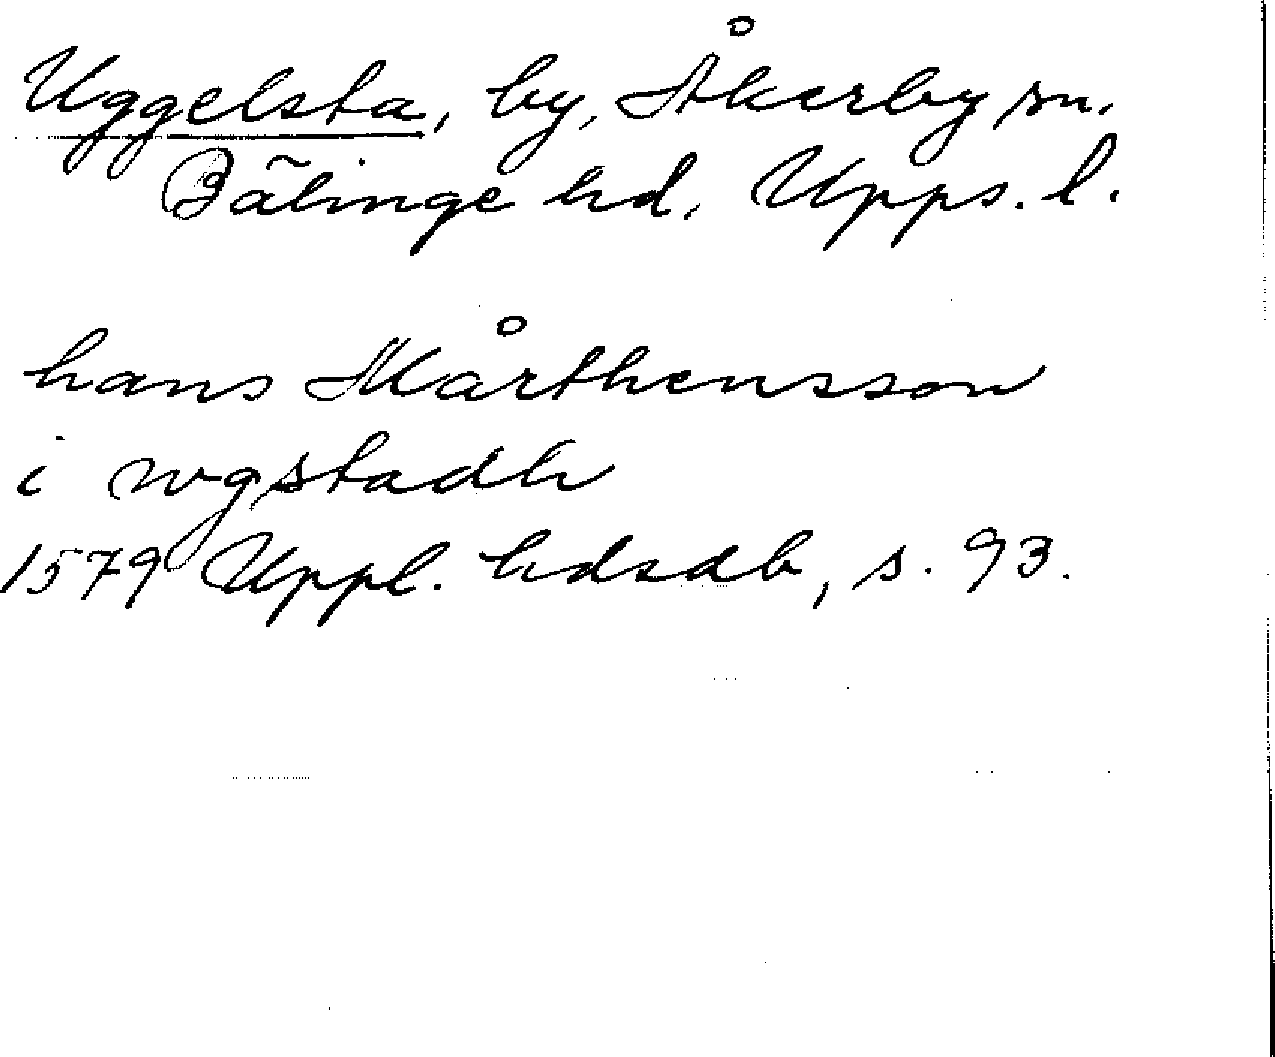 Uggelsta, by, Åkerby sn.
Bälinge hd, Upps. l.
hans Mårthensson
i wgstadh
1579 Uppl. hdsdb, s. 93.